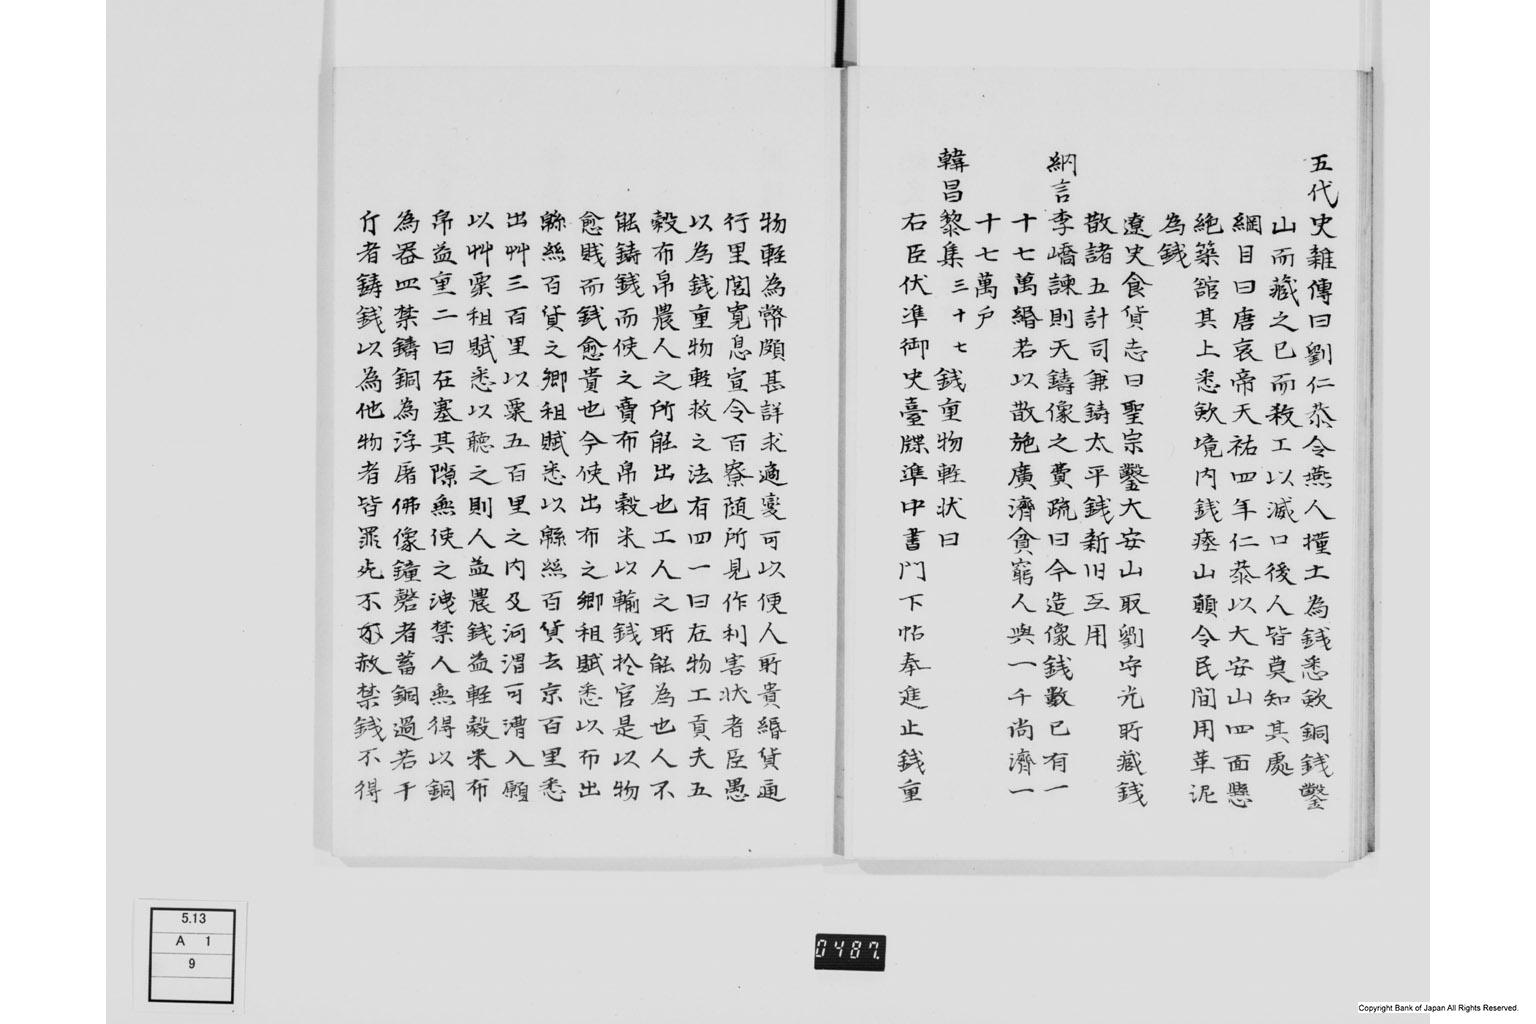 五代史雜傳曰劉仁恭令燕人墐土為錢悉歛銅錢鑿
山而藏之已而殺工以滅口後人皆莫知其處
綱目曰唐哀帝天祐四年仁恭以大安山四面懸
絶築舘其上悉歛境内錢瘞山顛令民間用菫泥
為錢
遼史食貨志曰聖宗鑿大安山取劉守光所藏錢
散諸五計司兼鑄太平錢新旧互用
納言李嶠諫則天鑄像之費疏曰今造像錢數已有一
十七萬緡若以散施廣濟貧窮人與一千尚濟一
十七萬戸
韓昌黎集三十七 錢重物軽状曰
右臣伏準御史臺牒準中書門下帖奉進止錢重
物軽為幣頗甚詳求適變可以便人所貴緡貨通
行里閭寛息宣令百寮随所見作利害状者臣愚
以為錢重物軽救之法有四一曰在物工貢夫五
穀布帛農人之所能出也工人之所能為也人不
能鑄錢而使之賣布帛穀米以輸錢於官是以物
愈賎而錢愈貴也今使出布之郷租賦悉以布出
緜絲百貨之郷租賦悉以緜絲百貨去京百里悉
出艸三百里以粟五百里之内及河渭可漕入願
以艸粟租賦悉以聴之則人益農錢益軽穀米布
帛益重二曰在塞其隙無使之洩禁人無得以銅
為器皿禁鑄銅為浮屠佛像鐘磬者蓄銅過若干
斤者鑄錢以為他物者皆罪死不赦禁錢不得
5.13
A 1
9
0487.
Copyright Bank of Japan All Rights Reserved.